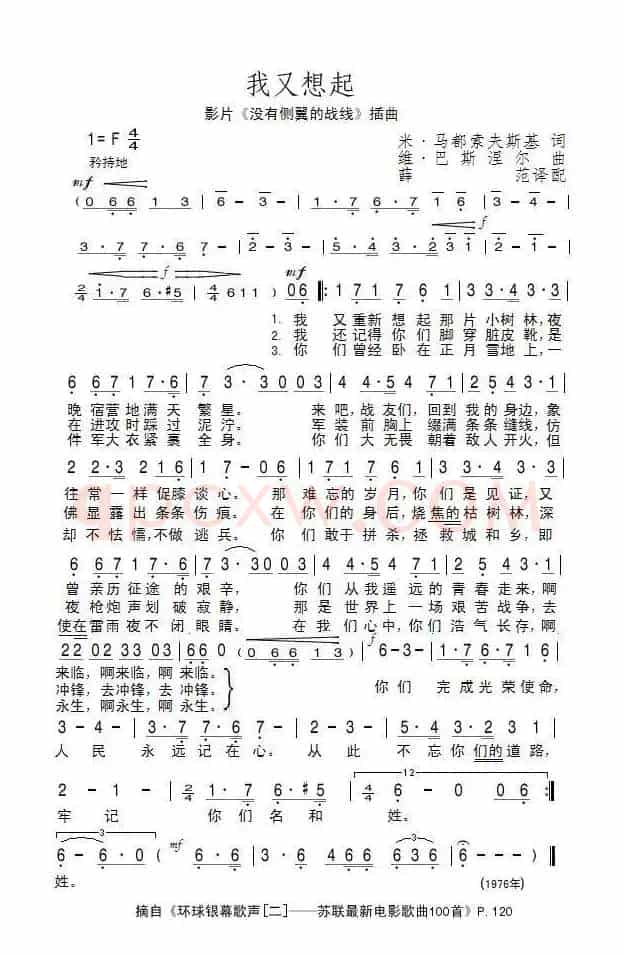 我又想起
影片《没有侧翼的战线》插曲
1=F 4/4
矜持地
米·马都索夫斯基 词
维·巴斯涅尔 曲
薛 范译配
mf
(0 6 6 1 3 | 6 - 3 - | 1 · 7 6 · 7 | 1 · 6 - | 3 - 4 - |
f
3 · 7 7 · 6 | 7 - · | 2 - 3 - | 5 · 4 3 · 2 3 1 | 2 - 3 - |
f mf
2/4 1 · 7 6 · #5 | 4/4 6 1 1 ) 0 6 |: 1 7 1 7 6 1 | 3 3 · 4 3 3 · 4 |
1. 我 又重新想起那片小树林,夜
2. 我 还记得你们脚穿脏皮靴,是
3. 你们曾经卧在正月雪地上,一
6 6 7 1 1 7 · 6 | 7 3 · 3 0 0 3 | 4 4 · 5 4 7 1 | 2 5 4 3 · 1 |
晚宿营地满天繁星。来吧,战友们,回到我的身边,象
在进攻时踩过泥泞。军装前胸上缀满条条缝线,仿
件军大衣紧裹全身。你们大无畏朝着敌人开火,但
2 2 · 3 2 1 6 | 1 7 - 0 6 | 1 7 1 7 6 1 | 3 3 · 4 3 3 · 4 |
往常一样促膝谈心。那难忘的岁月,你们是见证,又
佛显露出条条伤痕。在你们的身后,烧焦的枯树林,深
却不怯懦,不做逃兵。你们敢于拼杀,拯救城和乡,即
6 6 7 1 1 7 · 6 | 7 3 · 3 0 0 3 | 4 4 · 5 4 7 1 | 2 5 4 3 · 1 |
曾亲历征途的艰辛,你们从我遥远的青春走来,啊
夜枪炮声划破寂静,那是世界上一场艰苦战争,去
使在雷雨夜不闭眼睛。在我们心中,你们浩气长存,啊
2 2 0 2 3 3 · 3 | 6 6 0 0 | (0 6 6 1 3) | 6 - 3 - | 1 · 7 6 7 6 | 7 - 1 - |
f
来临,啊来临,啊 来临。
冲锋,去冲锋,去 冲锋。
永生,啊永生,啊 永生。
你们 完成光荣使命,
3 - 4 - | 3 · 7 7 · 6 | 7 - · | 2 - 3 - | 5 · 4 3 · 2 3 1 |
人民 永远记在心。从此 不忘你们的道路,
12
2 - 1 - | 2/4 1 · 7 6 · #5 | 4/4 6 - 0 0 6 :|
牢记 你们名和 姓。
3 mf 3
6 - 6 · 0 | 1 - 1 · 6 | 3 - 3 · 6 | 4 6 6 6 3 6 | 6 - - 0 ‖
姓。
(1976年)
摘自《环球银幕歌声[二]——苏联最新电影歌曲100首》P. 120